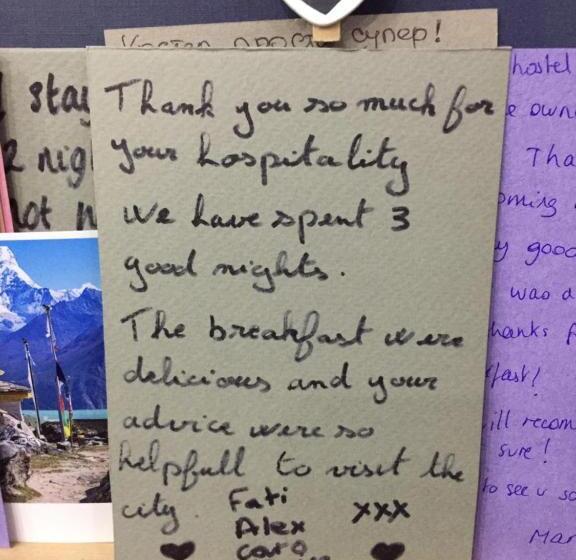 просто супер!
Thank you so much for
your hospitality
we have spent 3
good nights.
The breakfast were
delicious and your
advice were so
helpfull to visit the
city.
Fati
Alex
xxx
stay
2 nig
not
hostel
e own
Tha
oming
y good
was a
hanks f
fast!
ill recom
sure!
to see u so
Mar